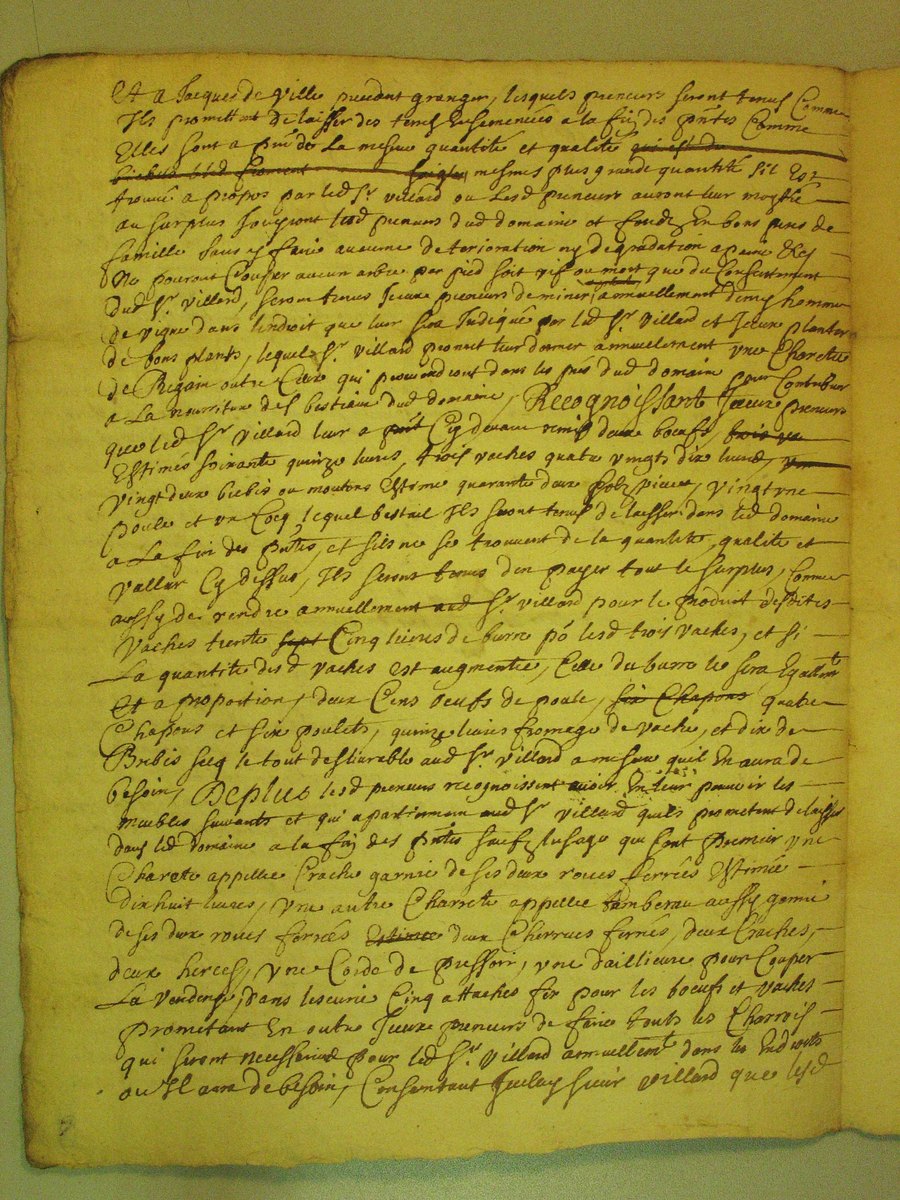 Et a Jacques de Ville precedent granger, lesquels preneurs seront tenus Comme
Ils promettent de laisser des terres Ensemencées a la fin des pntes Comme
Elles sont a pnt de La mesme quantité et qualité
bichets bled froment seigle, mesmes plus grande quantité sil Est
trouvé a propos par led Sr villard ou Lesd preneurs auront leur moytié
au surplus Jouyront lesd preneurs dud domaine et fondz En bons peres de
famille sans y faire aucune deterioration ny degradation a peine
Ne pourront Couper aucun arbre par pied soit vif ou mort que du Consentement
dud Sr villard, seront tenus Iceux preneurs de miner annuellement demy homme
de vigne dans lindroit que leur sera Indiqué par led Sr villard et Iceux planter
de bons plants, lequel Sr villard promet leur donner annuelement une Charetée
de Regain outre Celuy qui proviendront dans les prés dud domaine pour Contribuer
a La nourriture des bestiaux dud domaine, Recognoissant Iceux preneurs
que led Sr villard leur a Cy devant remis deux boeufs
Estimés soixante quinze livres, trois vaches quatre vingts dix livres,
vingt deux brebis ou moutons Estimé quarante deux solz piece, vingt une
poule et un Cocq, lequel bestail Ils seront tenus de laisser dans led domaine
a La fin des pntes, et sils ne se trouvent de la quantité, qualité et
valleur Cy dessus, Ils seront tenus den payer tout le surplus, Comme
aussy de rendre annuellement aud Sr villard pour le produit desdites
vaches trente sept Cinq livres de burre po lesd trois vaches, et si
La quantité desd vaches est augmentée, Celle du burre le sera Egallemt
Et a proportion, deux Cens oeufs de poule, six Chapons quatre
Chapons et six poulets, quinze livres fromage de vache, et dix de
Brebis secq le tout deslivrable aud Sr villard a mesure quil En aura de
besoin, De plus lesd preneurs recognoissent avoir En leur pouvoir les
meubles suivants et qui apartiennent aud Sr villard quils promettent de laisser
dans led domaine a la fin des pntes sauf lusage qui sont Premier une
Charette appellée Crache garnie de ses deux roues ferrées Estimée
dixhuit livres, une autre Charrette appellée tombereau aussy garnie
de ses deux roues ferrées Estimée deux Cherrues ferrées, deux Craches,
deux herces, une Corde de pressoir, une taillieure pour Couper
La vendenge, dans lescurie Cinq attaches fer pour les boeufs et vaches
promettant En outre Iceux preneurs de faire touts les Charrois
qui seront necessaires pour led Sr villard annuellemt dans les Endroits
ou Il aura de besoin, Consentant Iceluy sieur villard que lesd